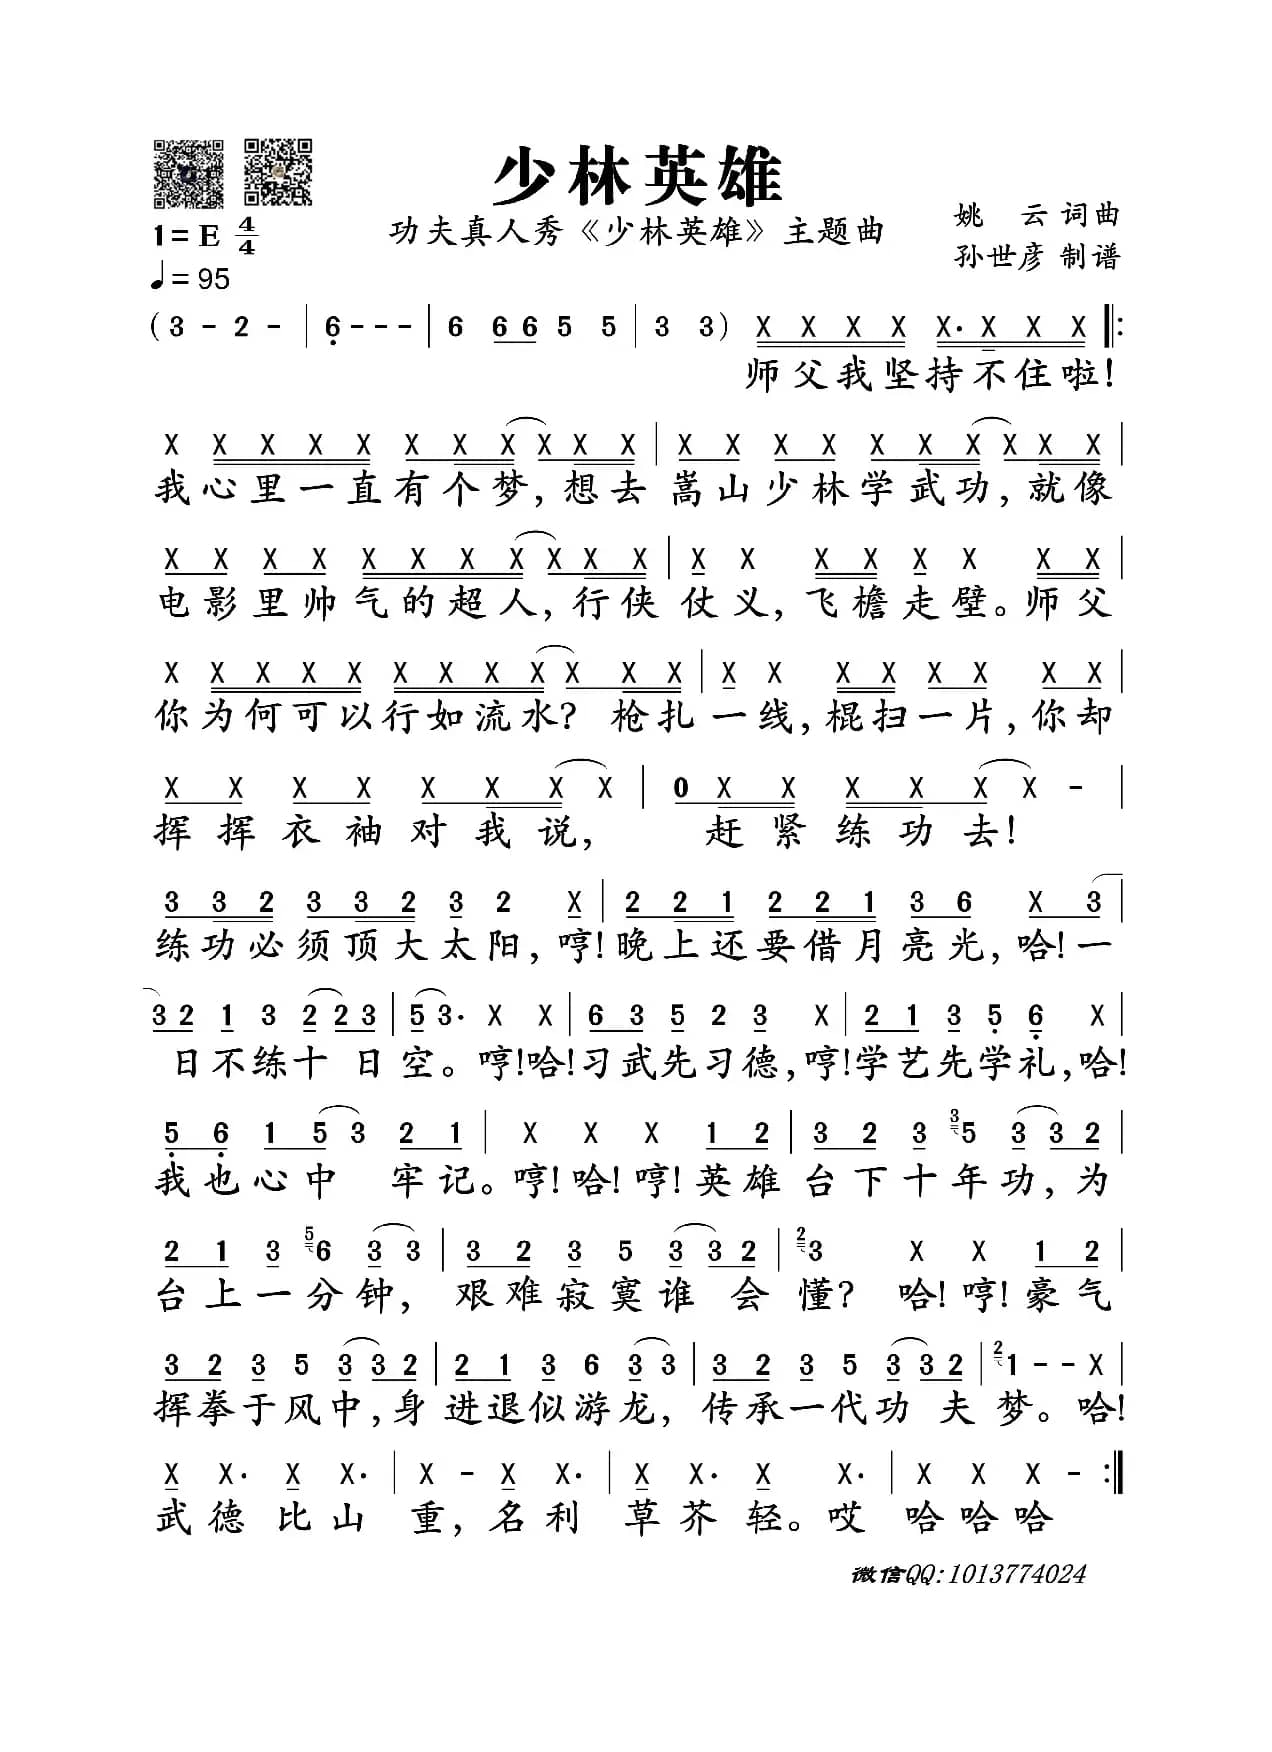 少林英雄
功夫真人秀《少林英雄》主题曲
姚　云 词曲
孙世彦 制谱
1= E 4/4
♩= 95
( 3 - 2 - | 6 - - - | 6 6 6 5 5 | 3 3 ) X X X X X. X X X ‖:
师父我坚持不住啦!
X X X X X X X X X X X | X X X X X X X X X X
我心里一直有个梦,想去 嵩山少林学武功,就像
X X X X X X X X X X X | X X X X X X X X |
电影里帅气的超人,行侠 仗义,飞檐走壁。师父
X X X X X X X X X X X X | X X X X X X X X |
你为何可以行如流水? 枪扎 一线,棍扫一片,你却
X X X X X X X X | 0 X X X X X X - |
挥挥衣袖对我说, 赶紧练功去!
3 3 2 3 3 2 3 2 X | 2 2 1 2 2 1 3 6 X 3 |
练功必须顶大太阳,哼!晚上还要借月亮光,哈!一
3 2 1 3 2 2 3 | 5 3. X X | 6 3 5 2 3 X | 2 1 3 5 6 X |
日不练十 日空。哼!哈!习武先习德,哼!学艺先学礼,哈!
5 6 1 5 3 2 1 | X X X 1 2 | 3 2 3 3 5 3 3 2 |
我也心中 牢记。哼!哈!哼!英雄 台下十年功,为
2 1 3 5 6 3 3 | 3 2 3 5 3 3 2 | 2 3 X X 1 2 |
台上一分钟, 艰难寂寞谁 会 懂? 哈!哼!豪气
3 2 3 5 3 3 2 | 2 1 3 6 3 3 | 3 2 3 5 3 3 2 | 2 1 - - X |
挥拳于风中,身 进退似游龙, 传承一代功 夫 梦。哈!
X X. X X. | X - X X. | X X. X X. | X X X - :‖
武德 比山 重,名利 草芥轻。哎 哈哈哈
微信QQ:1013774024